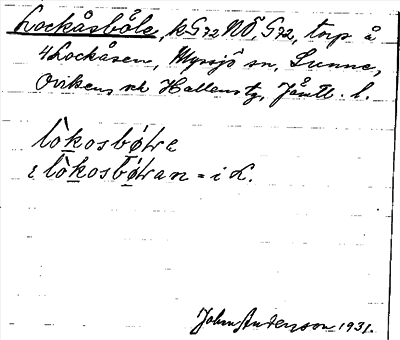 Lockåsböle, k G72 NÖ, G72, torp å
4 Lockåsen, Myssjö sn, Sunne,
Oviken och Hallens tg, Jämtl. l.
lòkosbøʹɫa
i lòkosbøʹɫan = i L.
John Anderson 1931.